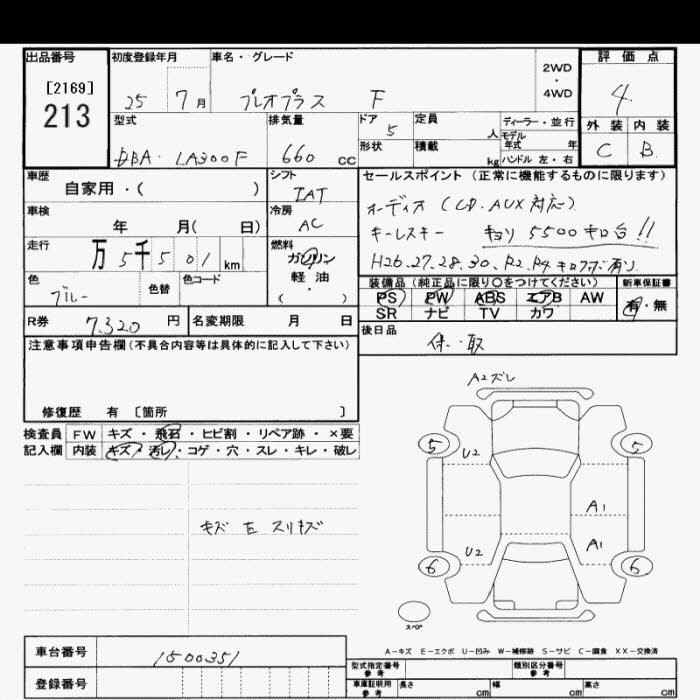 出品番号 初度登録年月 車名・グレード 評価点
[2169] 213
25 7月 プレオプラス F 2WD・4WD 4
型式 排気量 ドア 5 定員 人 ディーラー・並行 外装 内装
モデル年式 年
DBA・LA300F 660 cc 形状 積載 kg ハンドル 左・右 C B
車歴 自家用・( ) シフト IAT セールスポイント(正常に機能するものに限ります)
車検 年 月( 日) 冷房 AC オーディオ(CD.AUX対応)
キーレスキー キョリ 5500キロ台!!
走行 万5千501km 燃料 ガソリン・軽油 ( )
H26.27.28.30.R2.R4 キロクボ有り
色 ブルー 色替 色コード 装備品(純正品に限り○をつけてください) 新車保証書
PS PW ABS エアB AW 有・無
SR ナビ TV カワ
R券 7.320円 名変期限 月 日
後日品 保・取
注意事項申告欄(不具合内容等は具体的に記入して下さい)
修復歴 有 [箇所 ]
検査員 FW キズ・飛石・ヒビ割・リペア跡・×要
記入欄 内装 キズ・汚レ・コゲ・穴・スレ・キレ・破レ
A2ズレ
5 5
U2
キズ 左 スリキズ
A1
U2 A1
6 6
スペア
A−キズ E−エクボ U−凹み W−補修跡 S−サビ C−腐食 XX−交換済
車台番号 1500351
型式指定番号 参考 類別区分番号 参考
登録番号
車庫証明用 参考 長さ cm 幅 cm 高さ cm